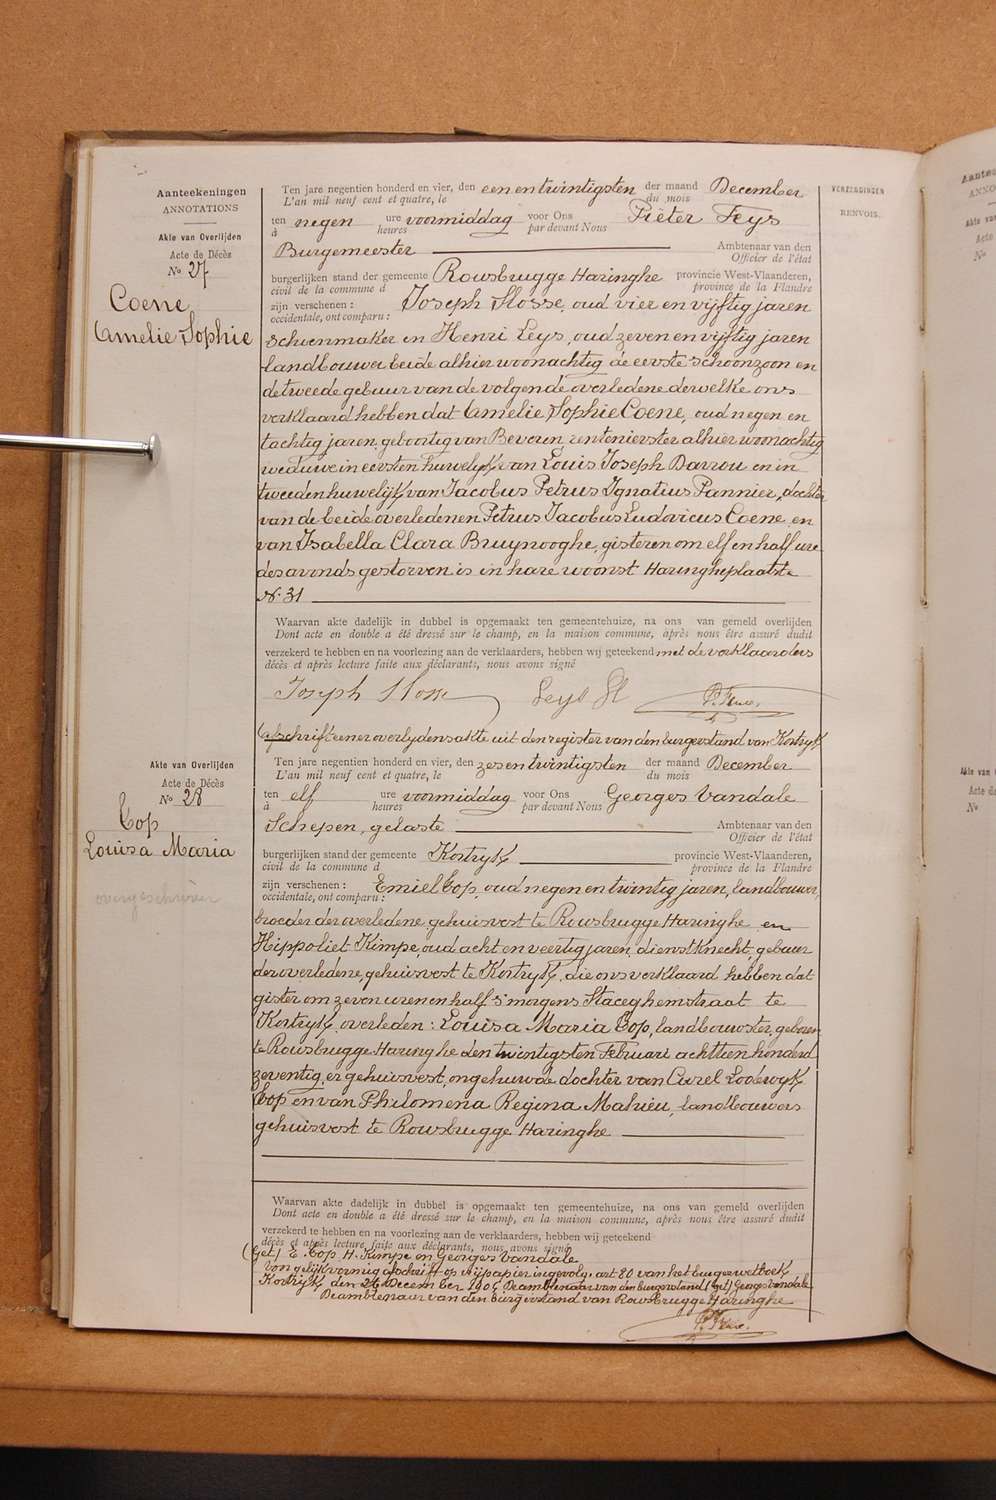 Aanteekeningen
ANNOTATIONS
Akte van Overlijden
Acte de Décès
No 27
Coene
Amelie Sophie
Ten jare negentien honderd en vier, den een en twintigsten der maand December
L'an mil neuf cent et quatre, le du mois
ten negen ure voormiddag voor Ons Pieter Feys
à heures par devant Nous
Burgemeester Ambtenaar van den
Officier de l'état
burgerlijken stand der gemeente Rousbrugge Haringhe provincie West-Vlaanderen,
civil de la commune d province de la Flandre
zijn verschenen : Joseph Slosse, oud vier en vijftig jaren
occidentale, ont comparu :
schoenmaker en Henri Leys, oud zeven en vijftig jaren
landbouwer beide alhier woonachtig de eerste schoonzoon en
de tweede gebuur van de volgende overledene derwelke ons
verklaard hebben dat Amelie Sophie Coene, oud negen en
tachtig jaren, geboortig van Beveren, rentenierster alhier woonachtig
weduwe in eersten huwelijk van Louis Joseph Darrou en in
tweeden huwelijk van Jacobus Petrus Ignatius Pannier, dochter
van de beide overledenen Petrus Jacobus Ludovicus Coene en
van Isabella Clara Bruynooghe, gisteren om elf en half ure
des avonds gestorven is in hare woonst Haringheplaatste
No 31
Waarvan akte dadelijk in dubbel is opgemaakt ten gemeentehuize, na ons van gemeld overlijden
Dont acte en double a été dressé sur le champ, en la maison commune, après nous être assuré dudit
verzekerd te hebben en na voorlezing aan de verklaarders, hebben wij geteekend met de verklaarders
décès et après lecture faite aux déclarants, nous avons signé
Joseph Slosse Leys H P. Feys.
Afschrift eener overlydensakte uit den register van den burgerstand van Kortryk
Akte van Overlijden
Acte de Décès
No 28
Cop
Louisa Maria
overgeschreven
Ten jare negentien honderd en vier, den zesentwintigsten der maand December
L'an mil neuf cent et quatre, le du mois
ten elf ure voormiddag voor Ons Georges Vandale
à heures par devant Nous
Schepen, gelaste Ambtenaar van den
Officier de l'état
burgerlijken stand der gemeente Kortryk provincie West-Vlaanderen,
civil de la commune d province de la Flandre
zijn verschenen : Emiel Cop, oud negen en twintig jaren, landbouwer,
occidentale, ont comparu :
broeder der overledene gehuisvest te Rousbrugge Haringhe en
Hippoliet Kimpe, oud acht en veertig jaren, dienstknecht, gebuur
der overledene, gehuisvest te Kortryk, die ons verklaard hebben dat
gister om zeven uren en half 's morgens Staceghemstraat te
Kortryk, overleden : Louisa Maria Cop, landbouwster, geboren
te Rousbrugge Haringhe den twintigsten Februari achttien honderd
zeventig, er gehuisvest, ongehuwde dochter van Carel Lodewyk
Cop en van Philomena Regina Mahieu, landbouwers
gehuisvest te Rousbrugge Haringhe
Waarvan akte dadelijk in dubbel is opgemaakt ten gemeentehuize, na ons van gemeld overlijden
Dont acte en double a été dressé sur le champ, en la maison commune, après nous être assuré dudit
verzekerd te hebben en na voorlezing aan de verklaarders, hebben wij geteekend
décès et après lecture faite aux déclarants, nous avons signé
(Get) E. Cop, H. Kimpe en Georges Vandale
Voor gelijkvormig afschrift op vrij papier ingevolg art 80 van het burgerwetboek
Kortryk den 26 December 1904 De ambtenaar van den burgerstand (Get) Georges Vandale
De ambtenaar van den burgerstand van Rousbrugge Haringhe
P. Feys.
VERZENDINGEN
RENVOIS.